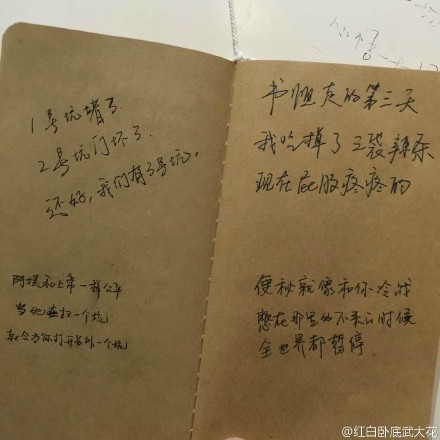 1号坑堵了.
2号坑门坏了.
还好,我们有3号坑.
阿姨和上帝一样公平
当他在扫一个坑
就会为你打开另外一个坑
的第三天
我吃掉了三袋辣条
现在屁股疼疼的
便秘就像和你冷战
憋在那里出不来的时候
全世界都暂停.
@红白卧底武大花